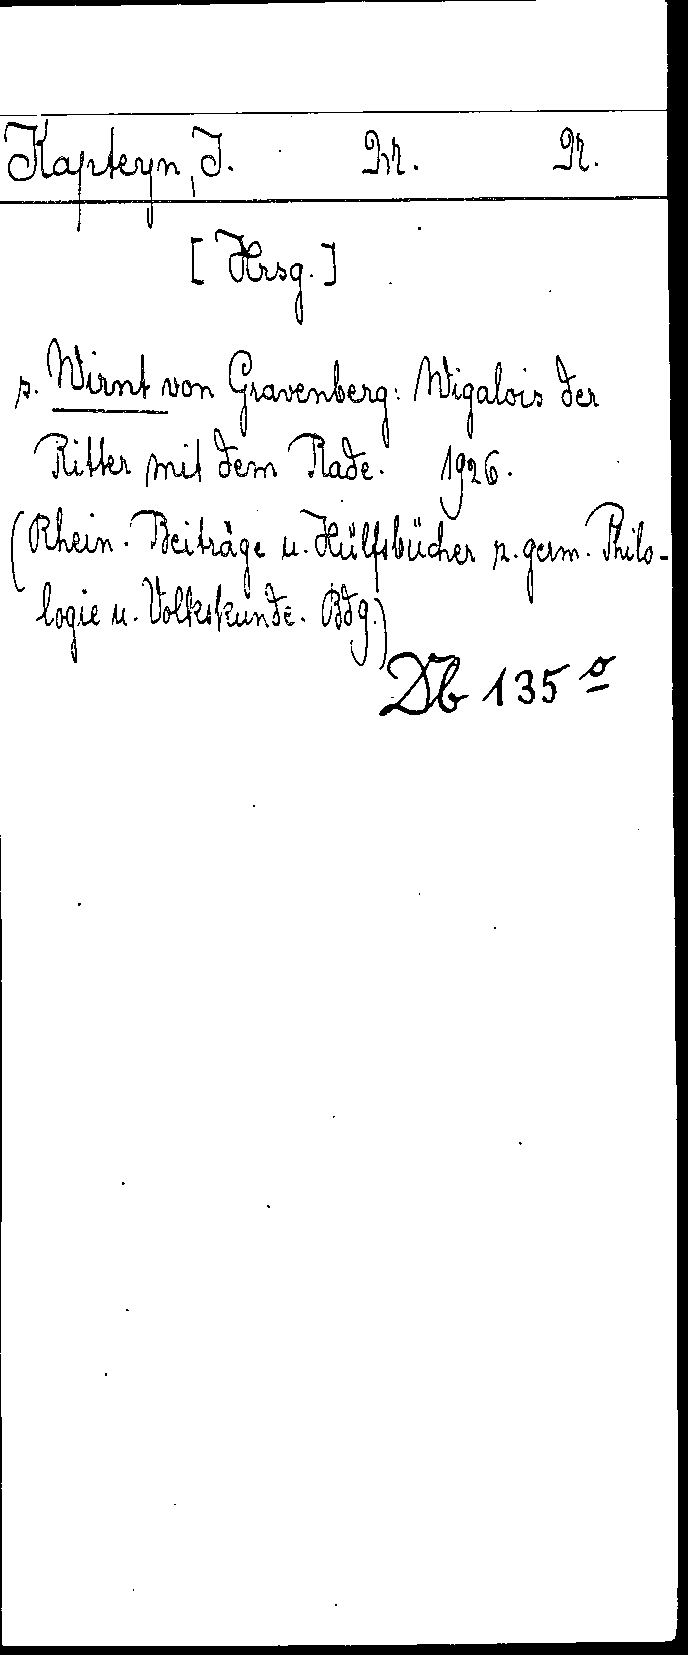 Kapteyn, J. M. N.
[Hrsg.]
s. Wirnt von Gravenberg: Wigalois der
Ritter mit dem Rade. 1926.
(Rhein. Beiträge u. Hülfsbücher z. germ. Philo-
logie u. Volkskunde. Bd 9.)
Db 135 o